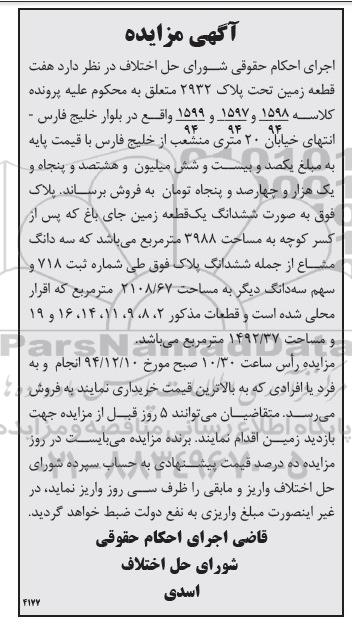 آگهی مزایده
اجرای احکام حقوقی شـــورای حل اختلاف در نظر دارد هفت
قطعه زمین تحت پلاک ۲۹۳۲ متعلق به محکوم علیه پرونده
کلاســـه ۱۵۹۸/۹۴ و ۱۵۹۷/۹۴ و ۱۵۹۹/۹۴ واقـــع در بلوار خلیج فارس -
انتهای خیابان ۲۰ متری منشعب از خلیج فارس با قیمت پایه
به مبلغ یکصد و بیســـت و شش میلیون و هشتصد و پنجاه و
یک هزار و چهارصد و پنجاه تومان به فروش برســاند. پلاک
فوق به صورت ششدانگ یک‌قطعه زمین جای باغ که پس از
کسر کوچه به مساحت ۳۹۸۸ مترمربع می‌باشد که سه دانگ
مشـــاع از جمله ششدانگ پلاک فوق طی شماره ثبت ۷۱۸ و
سهم سه‌دانگ دیگر به مساحت ۲۱۰۸/۶۷ مترمربع که اقرار
محلی شده است و قطعات مذکور ۲، ۸، ۹، ۱۱، ۱۴، ۱۶ و ۱۹
و مساحت ۱۴۹۲/۳۷ مترمربع می‌باشد.
مزایده رأس ساعت ۱۰/۳۰ صبح مورخ ۹۴/۱۲/۱۰ انجام و به
فرد یا افرادی که به بالاترین قیمت خریداری نمایند به فروش
می‌رســـد. متقاضیـــان می‌توانند ۵ روز قبـــل از مزایده جهت
بازدید زمیـــن اقدام نمایند. برنده مزایده می‌بایســـت در روز
مزایده ده درصد قیمت پیشـــنهادی به حساب سپرده شورای
حل اختلاف واریز و مابقی را ظرف ســـی روز واریز نماید، در
غیر اینصورت مبلغ واریزی به نفع دولت ضبط خواهد گردید.
قاضی اجرای احکام حقوقی
شورای حل اختلاف
اسدی
۴۱۷۷
ParsNamadData